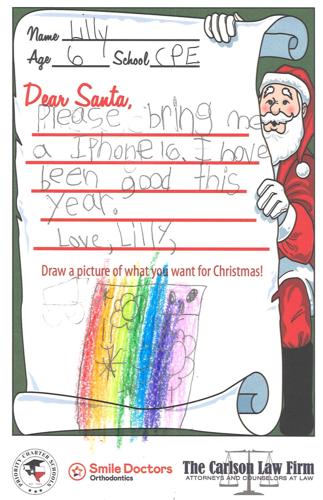 Name Lilly
Age 6 School CPE
Dear Santa,
Please bring me
a Iphone 16. I have
been good this
year.
Love, Lilly,
Draw a picture of what you want for Christmas!
PRIORITY CHARTER SCHOOLS
Smile Doctors
Orthodontics
The Carlson Law Firm
ATTORNEYS AND COUNSELORS AT LAW